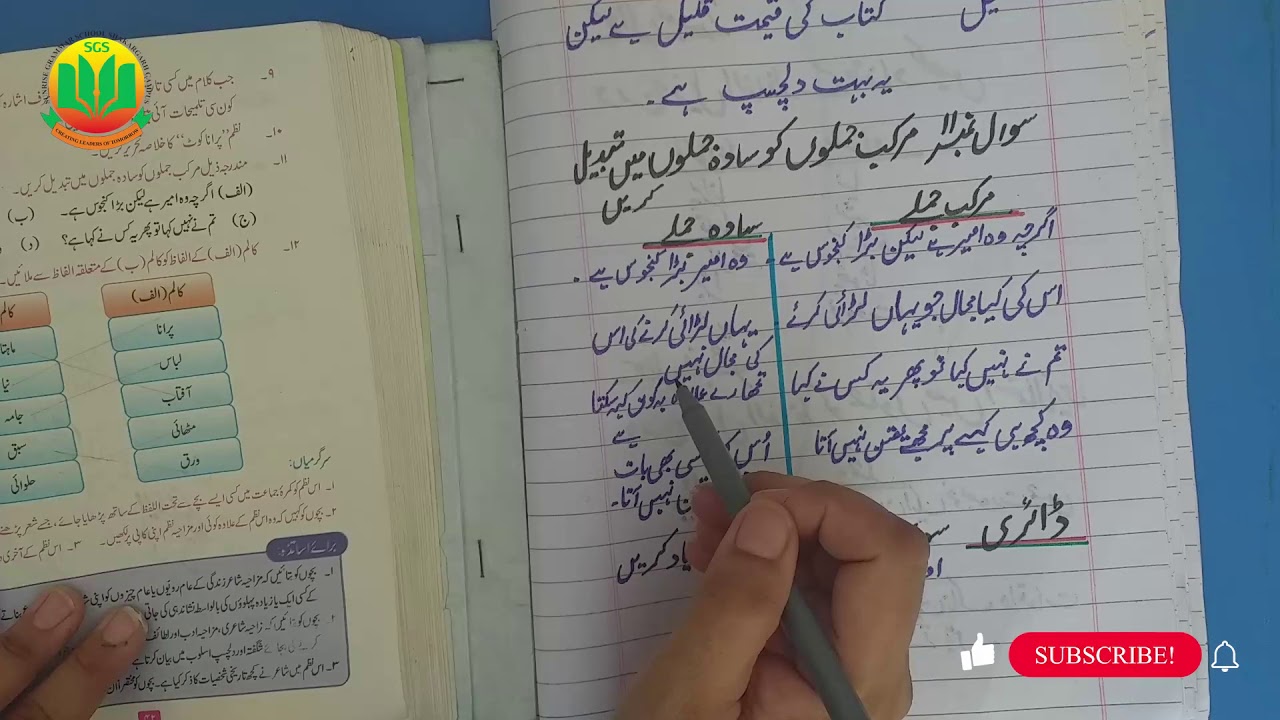 یل کتاب کی قیمت قلیل ہے لیکن
یہ بہت دلچسپ ہے۔
سوال نمبر 11 مرکب جملوں کو سادہ جملوں میں تبدیل
کریں
مرکب جملے
سادہ جملے
اگرچہ وہ امیر ہے لیکن بڑا کنجوس ہے
وہ امیر بڑا کنجوس ہے۔
اس کی کیا مجال جو یہاں لڑائی کرئے
یہاں لڑائی کرنے کی اس
کی مجال نہیں
تم نے نہیں کیا تو پھر یہ کس نے کیا
تمھارے علاوہ یہ کون کہہ سکتا
ہے
وہ کچھ بھی کہے پر مجھے یقین نہیں آتا
اُس کی بھی بات
نہیں آتا۔
ڈائری
یاد کریں
۹۔ جب کلام میں کسی
کون سی تلمیحات
۱۰۔ نظم "پرانا کوٹ" کا خلاصہ تحریر کریں۔
۱۱۔ مندرجہ ذیل مرکب جملوں کو سادہ جملوں میں تبدیل کریں۔
(الف) اگرچہ وہ امیر ہے لیکن بڑا کنجوس ہے۔ (ب)
(ج) تم نے نہیں کہا تو پھر یہ کس نے کہا ہے؟ (د)
۱۲۔ کالم (الف) کے الفاظ کو کالم (ب) کے متعلقہ الفاظ سے ملائیں۔
کالم (الف)
کالم
پرانا
لباس
آفتاب
مٹھائی
ورق
ماہتا
نیا
جامہ
سبق
حلوائی
سرگرمیاں:
۱۔ اس نظم کو کمرۂ جماعت میں کسی ایسے بچے سے تحت اللفظ کے ساتھ پڑھایا جائے، جسے شعر پڑھنے
۲۔ بچوں کو کہیں کہ وہ اس نظم کے علاوہ کوئی اور مزاحیہ نظم اپنی کاپی پر لکھیں۔ ۳۔ اس نظم کے آخری
برائے اساتذہ:
۱۔ بچوں کو بتائیں کہ مزاحیہ شاعر زندگی کے عام رویوں یا عام چیزوں کو اپنی
کے کسی ایک یا زیادہ پہلوؤں کی بالواسطہ نشاندہی کی جاتی
مزاحیہ شاعری، مزاحیہ ادب اور لطائف
شگفتہ اور دلچسپ اسلوب میں بیان کرتا ہے
۳۔ اس نظم میں شاعر نے کچھ تاریخی شخصیات کا ذکر کیا ہے۔ بچوں کو مختصراً ان
SGS
SUNRISE GRAMMAR SCHOOL SHAKARGARH CAMPUS
CREATING LEADERS OF TOMORROW
SUBSCRIBE!